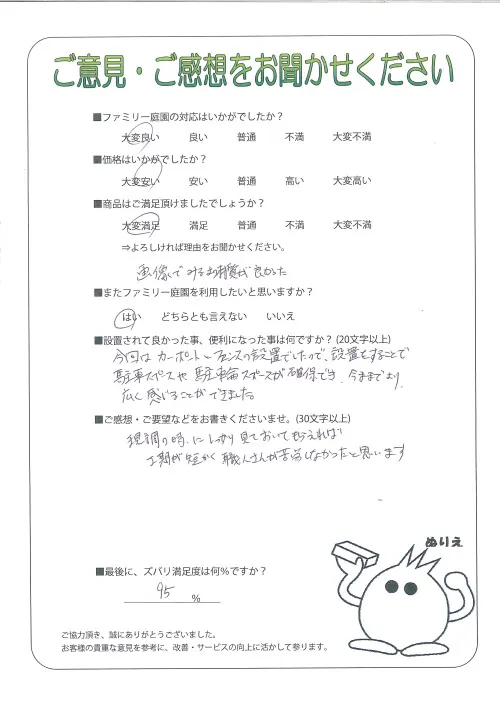 ご意見・ご感想をお聞かせください
■ファミリー庭園の対応はいかがでしたか？
大変良い 良い 普通 不満 大変不満
■価格はいかがでしたか？
大変安い 安い 普通 高い 大変高い
■商品はご満足頂けましたでしょうか？
大変満足 満足 普通 不満 大変不満
⇒よろしければ理由をお聞かせください。
画像でみるより質が良かった
■またファミリー庭園を利用したいと思いますか？
はい どちらとも言えない いいえ
■設置されて良かった事、便利になった事は何ですか？(20文字以上)
今回はカーポートとフェンスの設置でしたので、設置をすることで
駐車スペースや駐車輪スペースが確保でき、今までより
広く感じることができました。
■ご感想・ご要望などをお書きくださいませ。(30文字以上)
現調の時にしっかり見ておいてもらえれば
工期が短かく職人さんが苦労しなかったと思います
ぬりえ
■最後に、ズバリ満足度は何％ですか？
95 ％
ご協力頂き、誠にありがとうございました。
お客様の貴重な意見を参考に、改善・サービスの向上に活かして参ります。